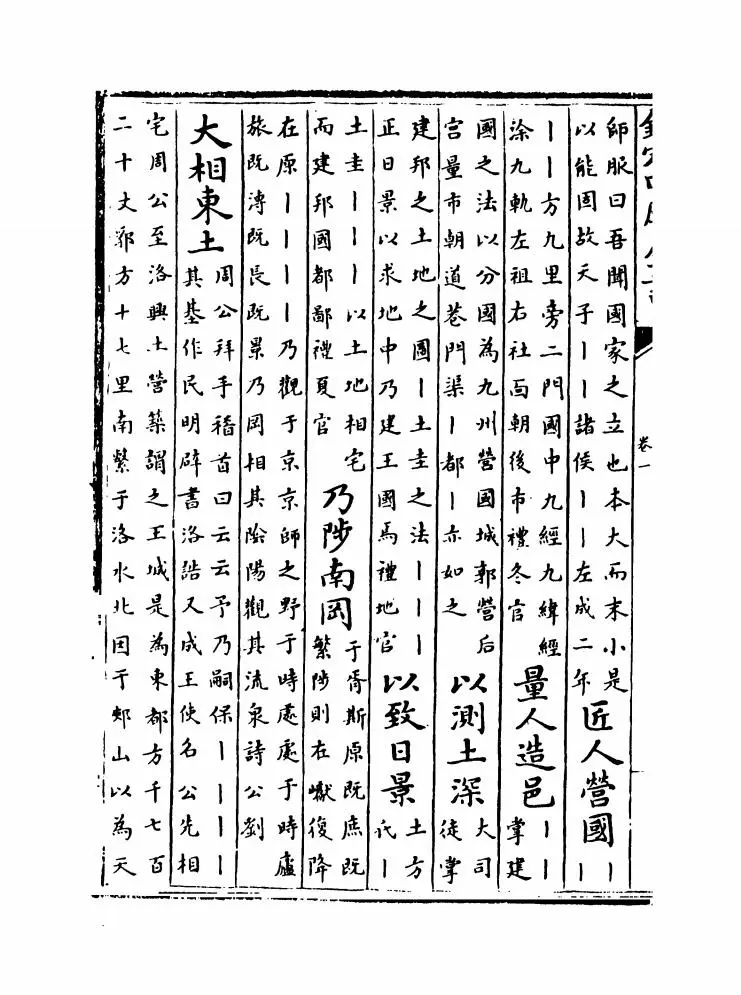 卷一
師服曰吾聞國家之立也本大而末小是
以能固故天子丨丨諸侯丨丨左成二年
匠人營國
丨
丨
丨丨方九里旁二門國中九經九緯經
涂九軌左祖右社面朝後市禮冬官
量人造邑
丨丨
掌建
國之法以分國為九州營國城郭營后
宮量市朝道巷門渠丨都丨亦如之
以測土深
大司
徒掌
建邦之土地之圖丨土圭之法丨丨丨
正日景以求地中乃建王國焉禮地官
以致日景
土方
氏丨
土圭丨丨丨以土地相宅
而建邦國都鄙禮夏官
乃陟南岡
于胥斯原既庶既
繁陟則在巘復降
在原丨丨丨丨乃觀于京京師之野于時處處于時廬
旅既溥既長既景乃岡相其陰陽觀其流泉詩公劉
大相東土
周公拜手稽首曰云云予乃嗣保丨丨丨丨
其基作民明辟書洛誥又成王使名公先相
宅周公至洛興土營築謂之王城是為東都方千七百
二十丈郛方十七里南繫于洛水北因于郟山以為天